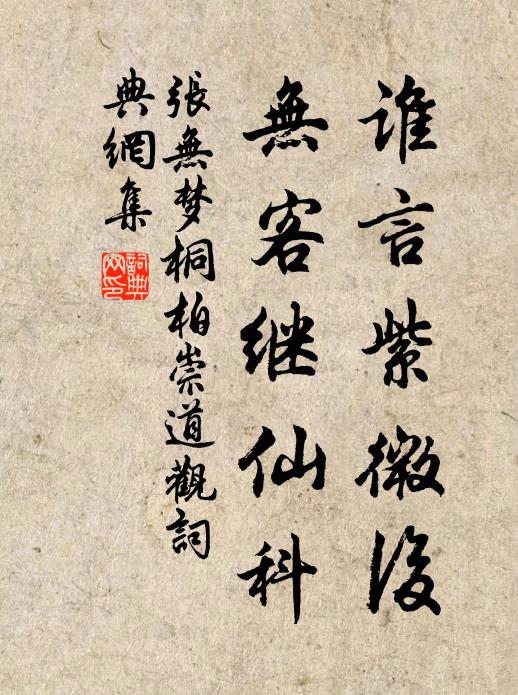 谁言紫微後
無客继仙科
張無梦桐柏崇道觀詞
典網集
詞典网印